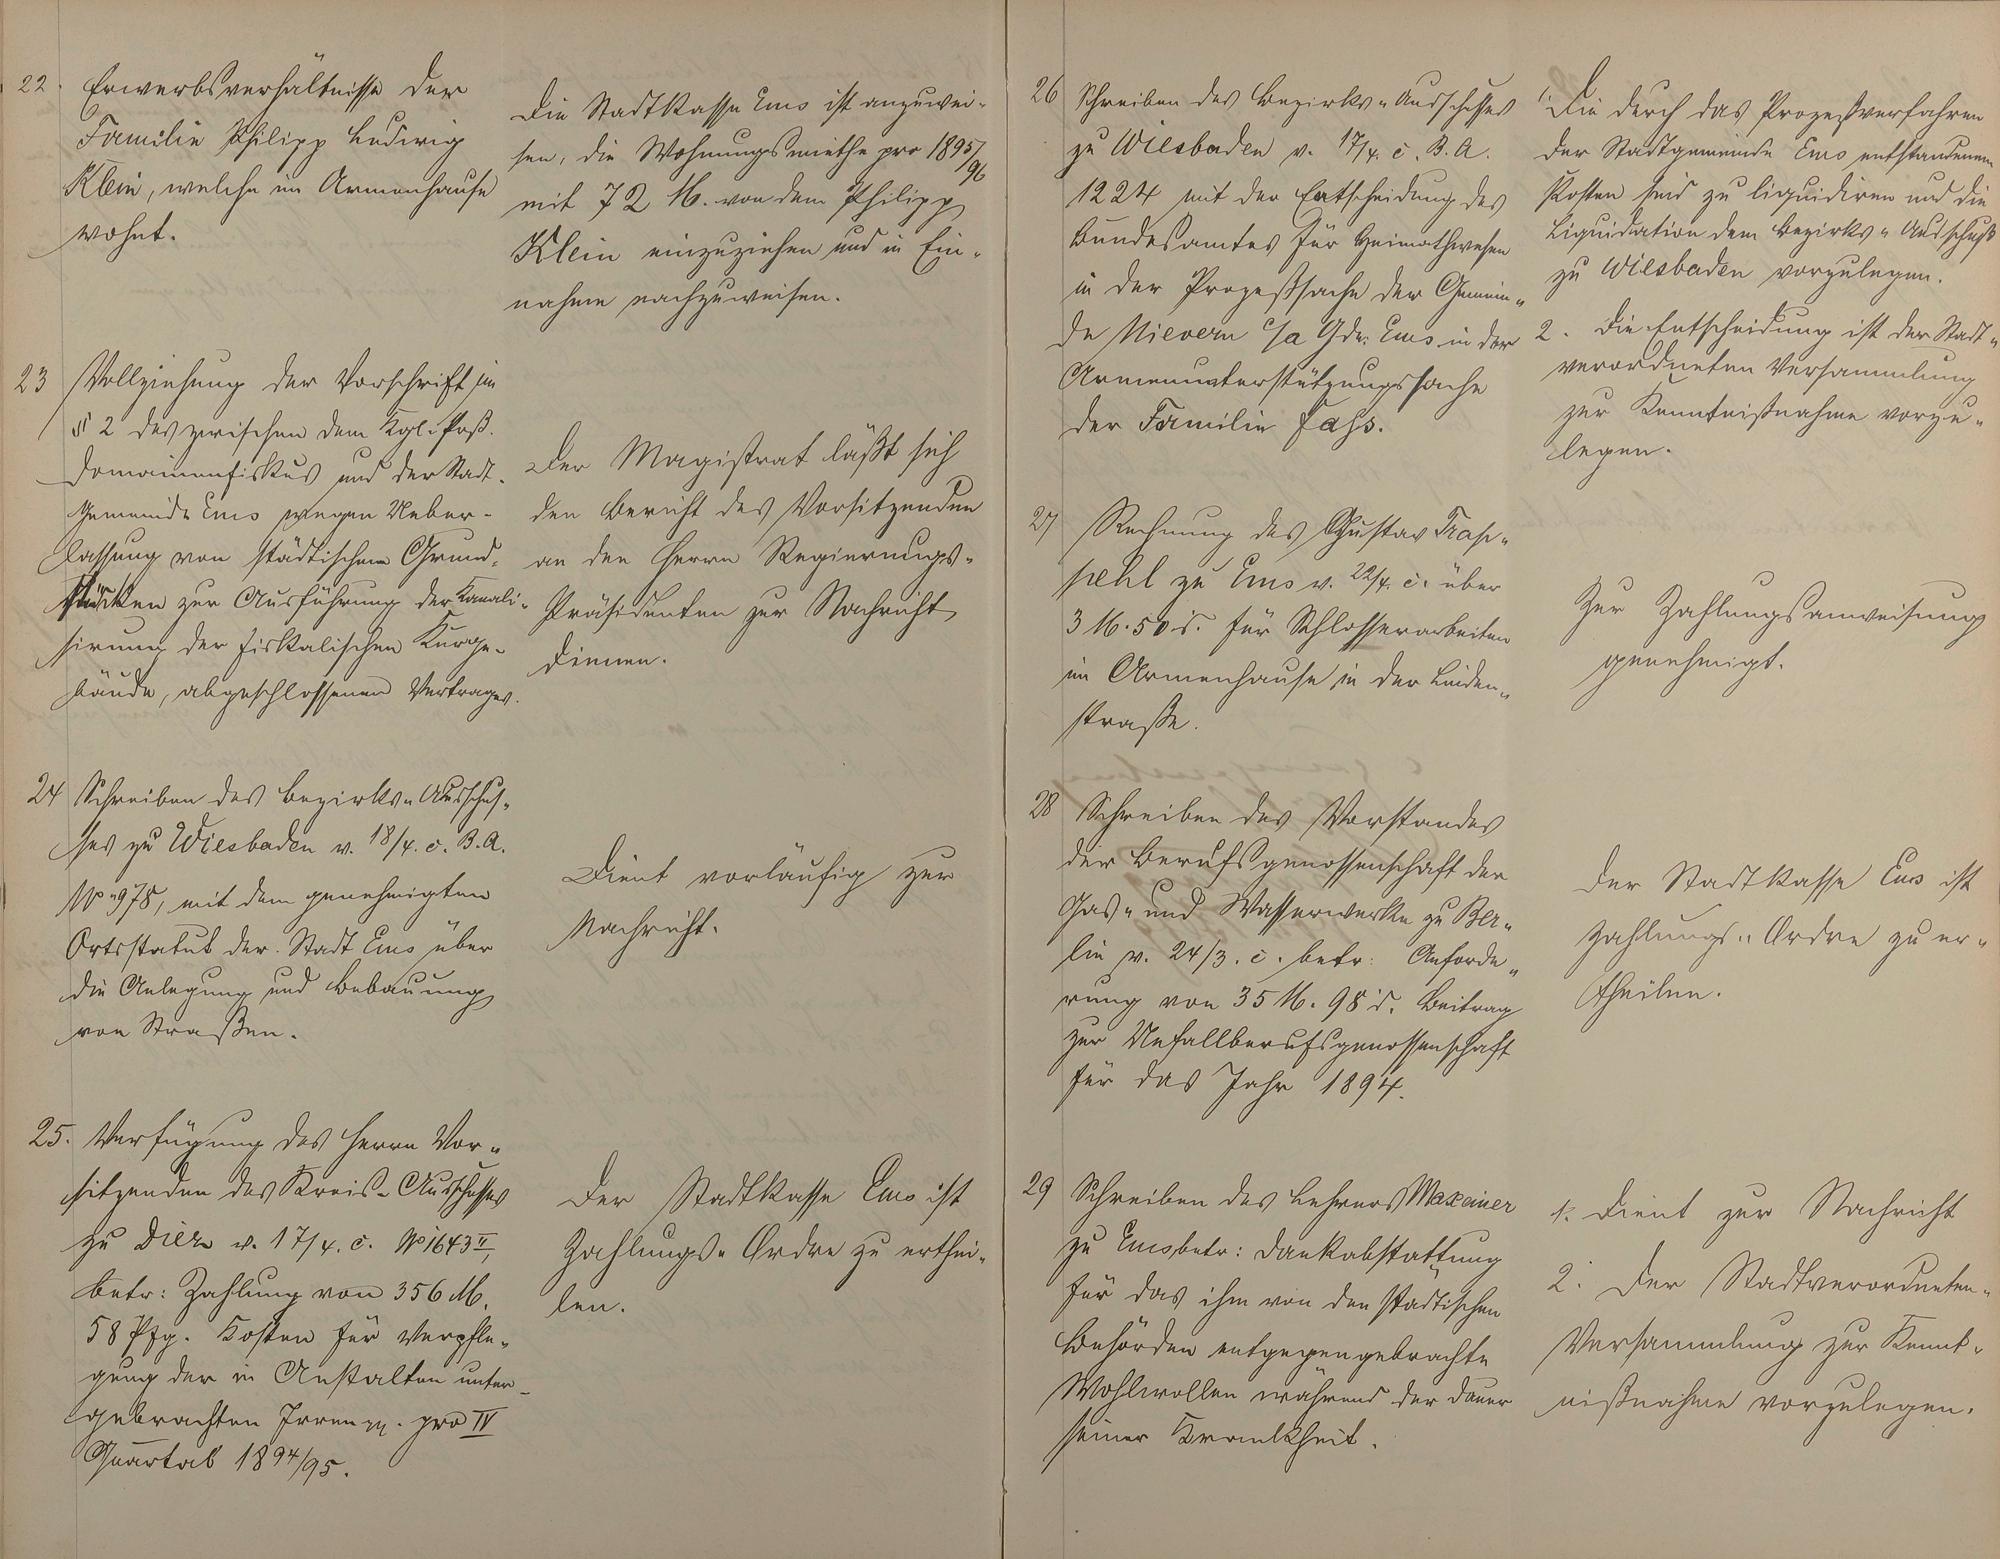 22. Erwerbsverhältnisse der
Familie Philipp Ludwig
Klein, welche im Armenhause
wohnt.
Die Stadtkasse Ems ist anzuwei-
sen, die Wohnungsmiethe pro 1895/
96
mit 72 M. von dem Philipp
Klein einzuziehen und in Ein-
nahme nachzuweisen.
23 Vollziehung der Vorschrift im
§ 2 des zwischen dem Kgl. Preß.
Domainenfiskus und der Stadt-
gemeinde Ems wegen Ueber-
lassung von städtischem Grund-
stücken zur Ausführung der Kanali-
sirung der fiskalischen Kurge-
bäude, abgeschlossenen Vertrages.
Der Magistrat läßt sich
den Bericht des Vorsitzenden
an den Herrn Regierungs-
Präsidenten zur Nachricht
dienen.
24 Schreiben des Bezirks-Ausschus-
ses zu Wiesbaden v. 18/4. c. B.A.
No 978, mit dem genehmigten
Ortsstatut der Stadt Ems über
die Anlegung und Bebauung
von Straßen.
Dient vorläufig zur
Nachricht.
25. Verfügung des Herrn Vor-
sitzenden des Kreis-Ausschusses
zu Diez v. 17/4. c. No 1643 II,
betr: Zahlung von 356 M.
58 Pfg. Kosten für Verpfle-
gung der in Anstalten unter-
gebrachten Irren pp. pro IV
Quartal 1894/95.
Der Stadtkasse Ems ist
Zahlungs-Ordre zu erthei-
len.
26 Schreiben des Bezirks-Ausschusses
zu Wiesbaden v. 17/4. c. B.A.
1224 mit der Entscheidung des
Bundesamtes für Heimathwesen
in der Prozeßsache der Gemein-
de Nievern c/a Gde. Ems in der
Armenunterstützungssache
der Familie Fass.
1. Die durch das Prozeßverfahren
der Stadtgemeinde Ems entstandenen
Kosten sind zu liquidiren und die
Liquidation dem Bezirks-Ausschuß
zu Wiesbaden vorzulegen.
2. Die Entscheidung ist der Stadt-
verordneten Versammlung
zur Kenntnißnahme vorzu-
legen.
27 Rechnung des Gustav Trap-
pehl zu Ems v. 22/4. c. über
3 M. 50 d. für Schlosserarbeiten
im Armenhause in der Linden-
straße.
Zur Zahlungsanweisung
genehmigt.
28 Schreiben des Vorstandes
der Berufsgenossenschaft der
Gas- und Wasserwerke zu Ber-
lin v. 24/3. c. betr: Anforde-
rung von 35 M. 98 d. Beitrag
zur Unfallberufsgenossenschaft
für das Jahr 1894.
Der Stadtkasse Ems ist
Zahlungs-Ordre zu er-
theilen.
29 Schreiben des Lehrers Maxeiner
zu Ems betr: Dankabstattung
für das ihm von den städtischen
Behörden entgegengebrachte
Wohlwollen während der Dauer
seiner Krankheit.
1. Dient zur Nachricht
2. Der Stadtverordneten-
Versammlung zur Kennt-
nißnahme vorzulegen.